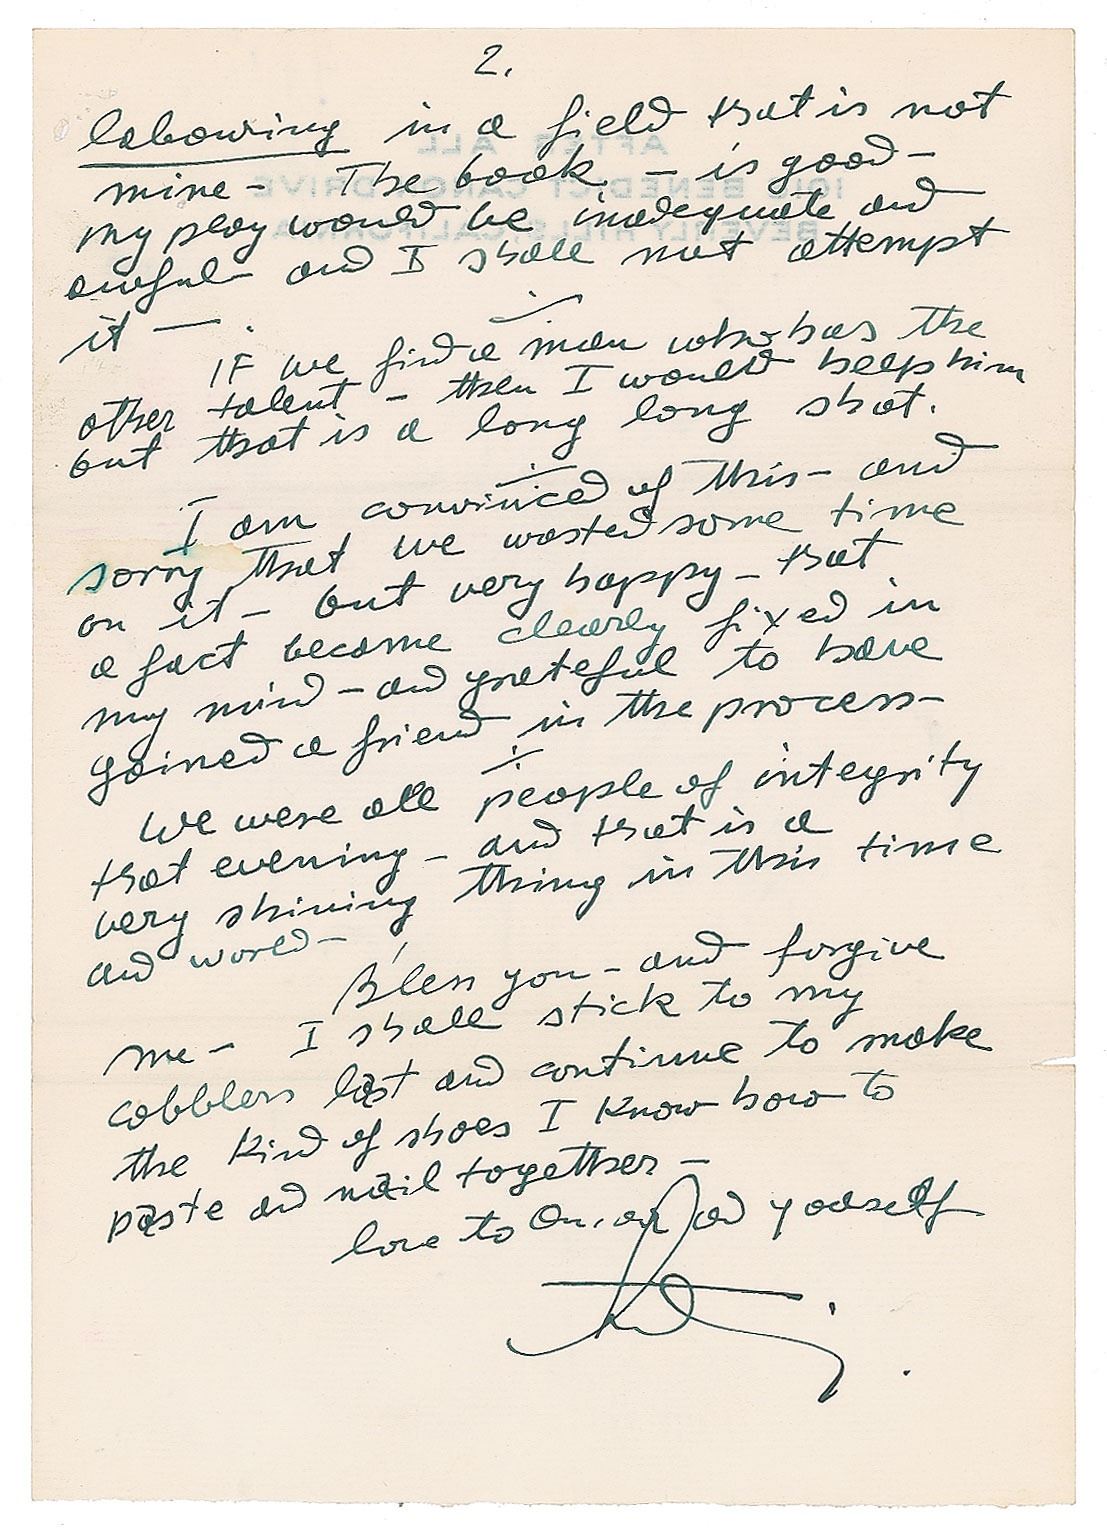 2.
labouring in a field that is not
mine - The book - is good -
my play would be inadequate and
awful - and I shall not attempt
it - .
IF we find a man who has the
other talent - then I would help him
but that is a long long shot.
I am convinced of this - and
sorry that we wasted some time
on it - but very happy - that
a fact became clearly fixed in
my mind - and grateful to have
gained a friend in the process -
We were all people of integrity
that evening - and that is a
very shining thing in this time
and world -
Bless you - and forgive
me - I shall stick to my
cobblers last and continue to make
the kind of shoes I know how to
paste and nail together -
love to and yourself
AFTER ALL
BENEDICT CANON DRIVE
BEVERLY HILLS, CALIFORNIA